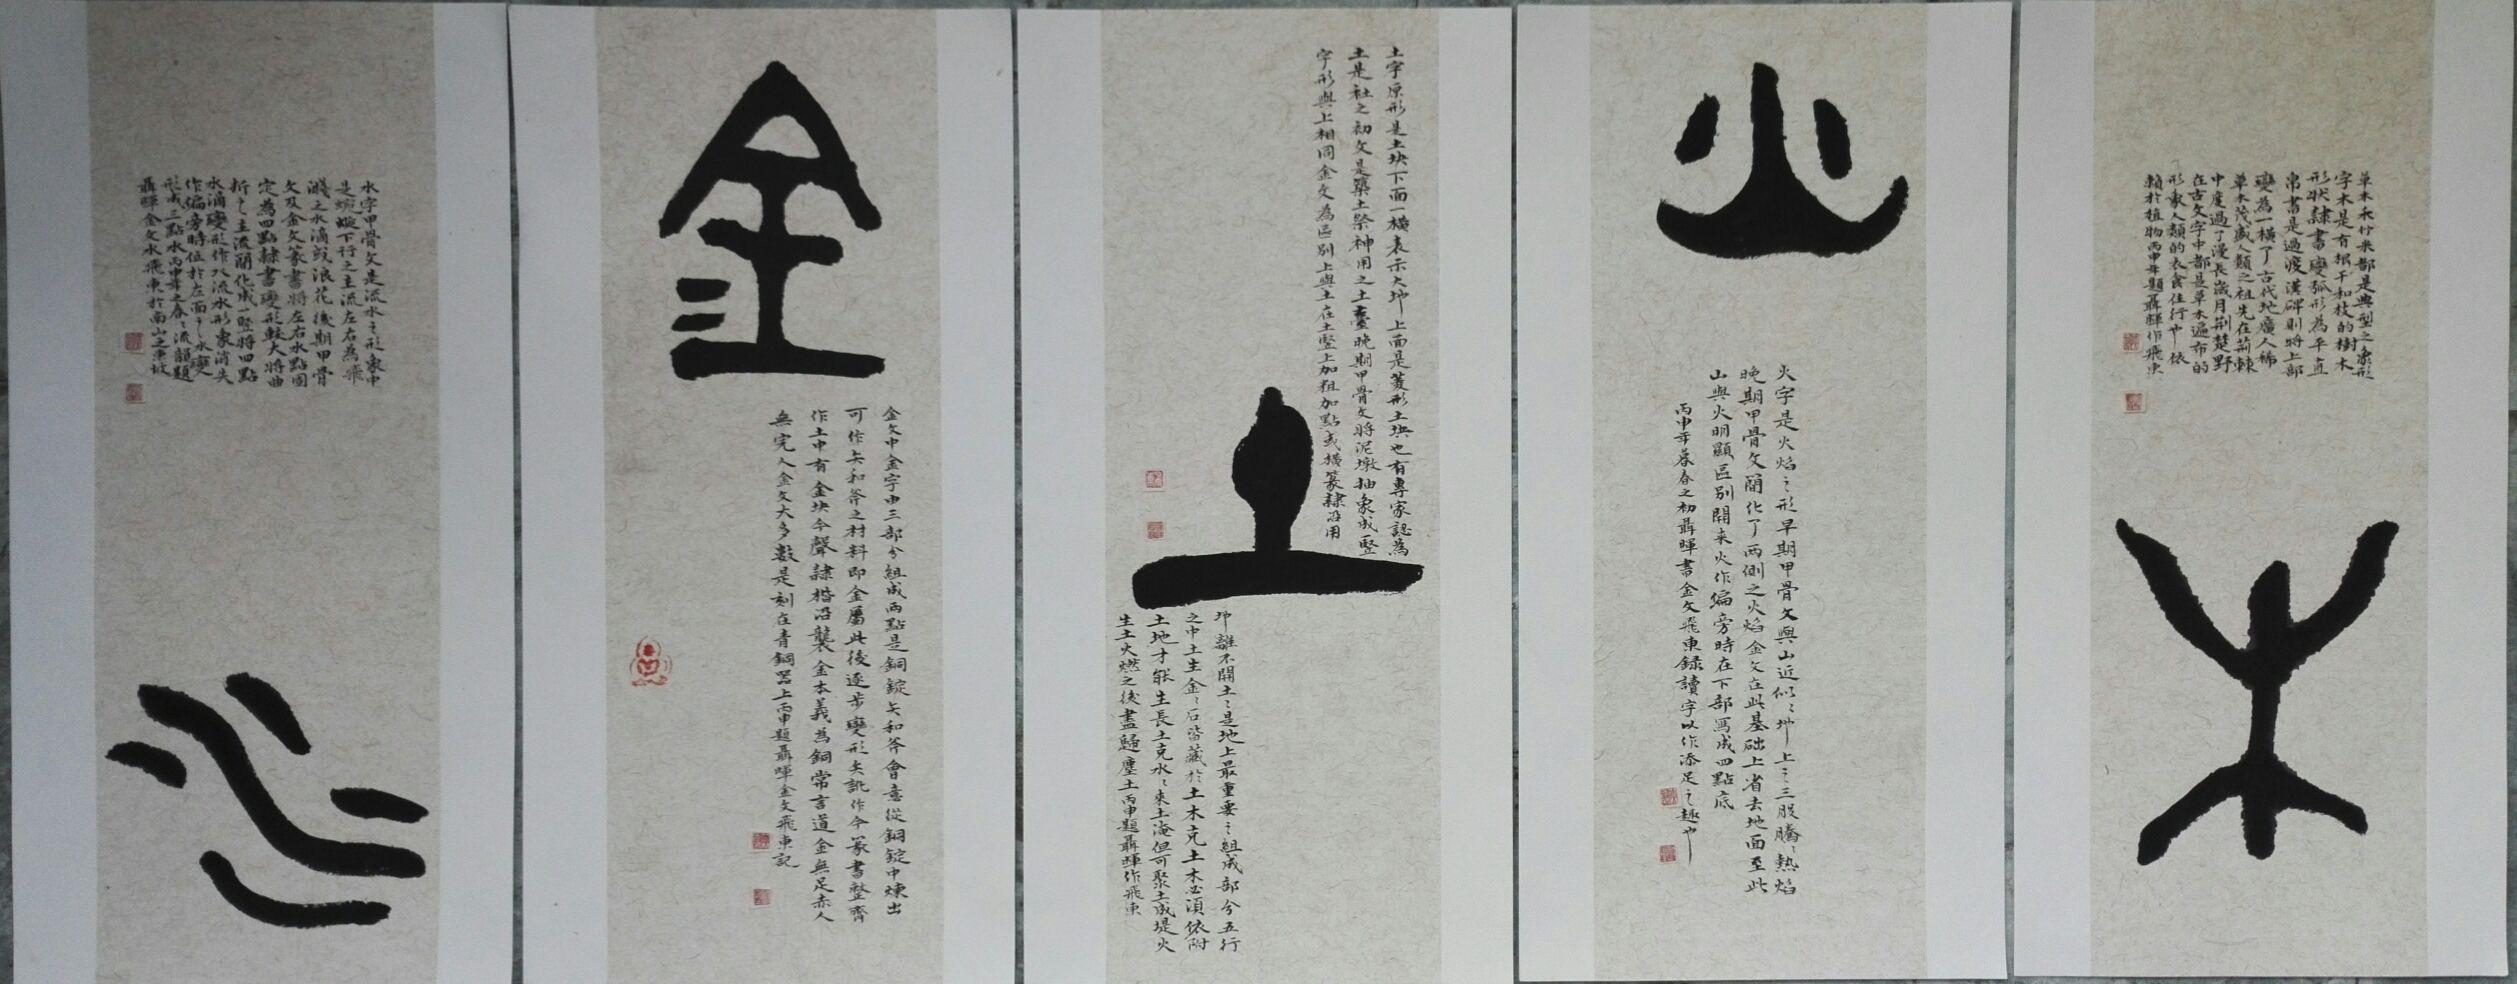 木
草木禾竹米都是典型之象形
字木是有根干和枝的樹木
形狀隸書變弧形為平直
帛書是過渡漢碑則將上部
變為一橫了古代地廣人稀
草木茂盛人類之祖先在荊棘
中度過了漫長歲月荊楚野
在古文字中都是草木遍布的
形象人類的衣食住行也依
賴於植物丙申年題聶暉作飛東
火
火字是火焰之形早期甲骨文與山近似々地上之三股騰々熱焰
晚期甲骨文簡化了兩側之火焰金文在此基础上省去地面至此
山與火明顯區別開來火作偏旁時在下部寫成四點底
丙申年暮春之初聶暉書金文飛東録讀字以作添足之趣也
土
土字原形是土块下面一橫表示大地上面是菱形土块也有專家認為
土是社之初文是築土祭神用之土臺晚期甲骨文將泥墩抽象成一竪
字形與上相同金文為區別上與土在土竪上加粗加點或橫篆隸沿用
地離不開土々是地上最重要之組成部分五行
之中土生金々石皆藏於土木克土木必須依附
土地才能生長土克水々來土淹但可聚土成堤火
生土火燃之後盡歸塵土丙申題聶暉作飛東
金
金文中金字由三部分組成兩點是銅錠矢和斧會意從銅錠中煉出
可作矢和斧之材料即金屬此後逐步變形矢訛作今篆書整齊
作土中有金块今聲隸楷沿襲金本義為銅常言道金無足赤人
無完人金文大多數是刻在青銅器上丙申題聶暉金文飛東記
水
水字甲骨文是流水之形象中
是蜿蜒下行之主流左右為飛
濺之水滴或浪花後期甲骨
文及金文篆書將左右水點固
定為四點隸書變形較大將曲
折之主流簡化成一竪將四點
水滴變形作八流水形象消失
作偏旁時位於左面之水變
形成三點水丙申年之春々流韻題
聶暉金文水飛東於南山之東坡